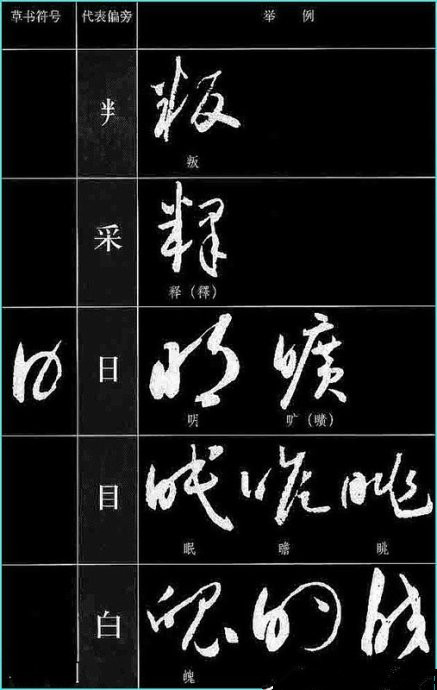 草书符号 代表偏旁 举 例
叛
采
释（釋）
日
明 旷（曠）
目
眠 瞻 眺
白
魄